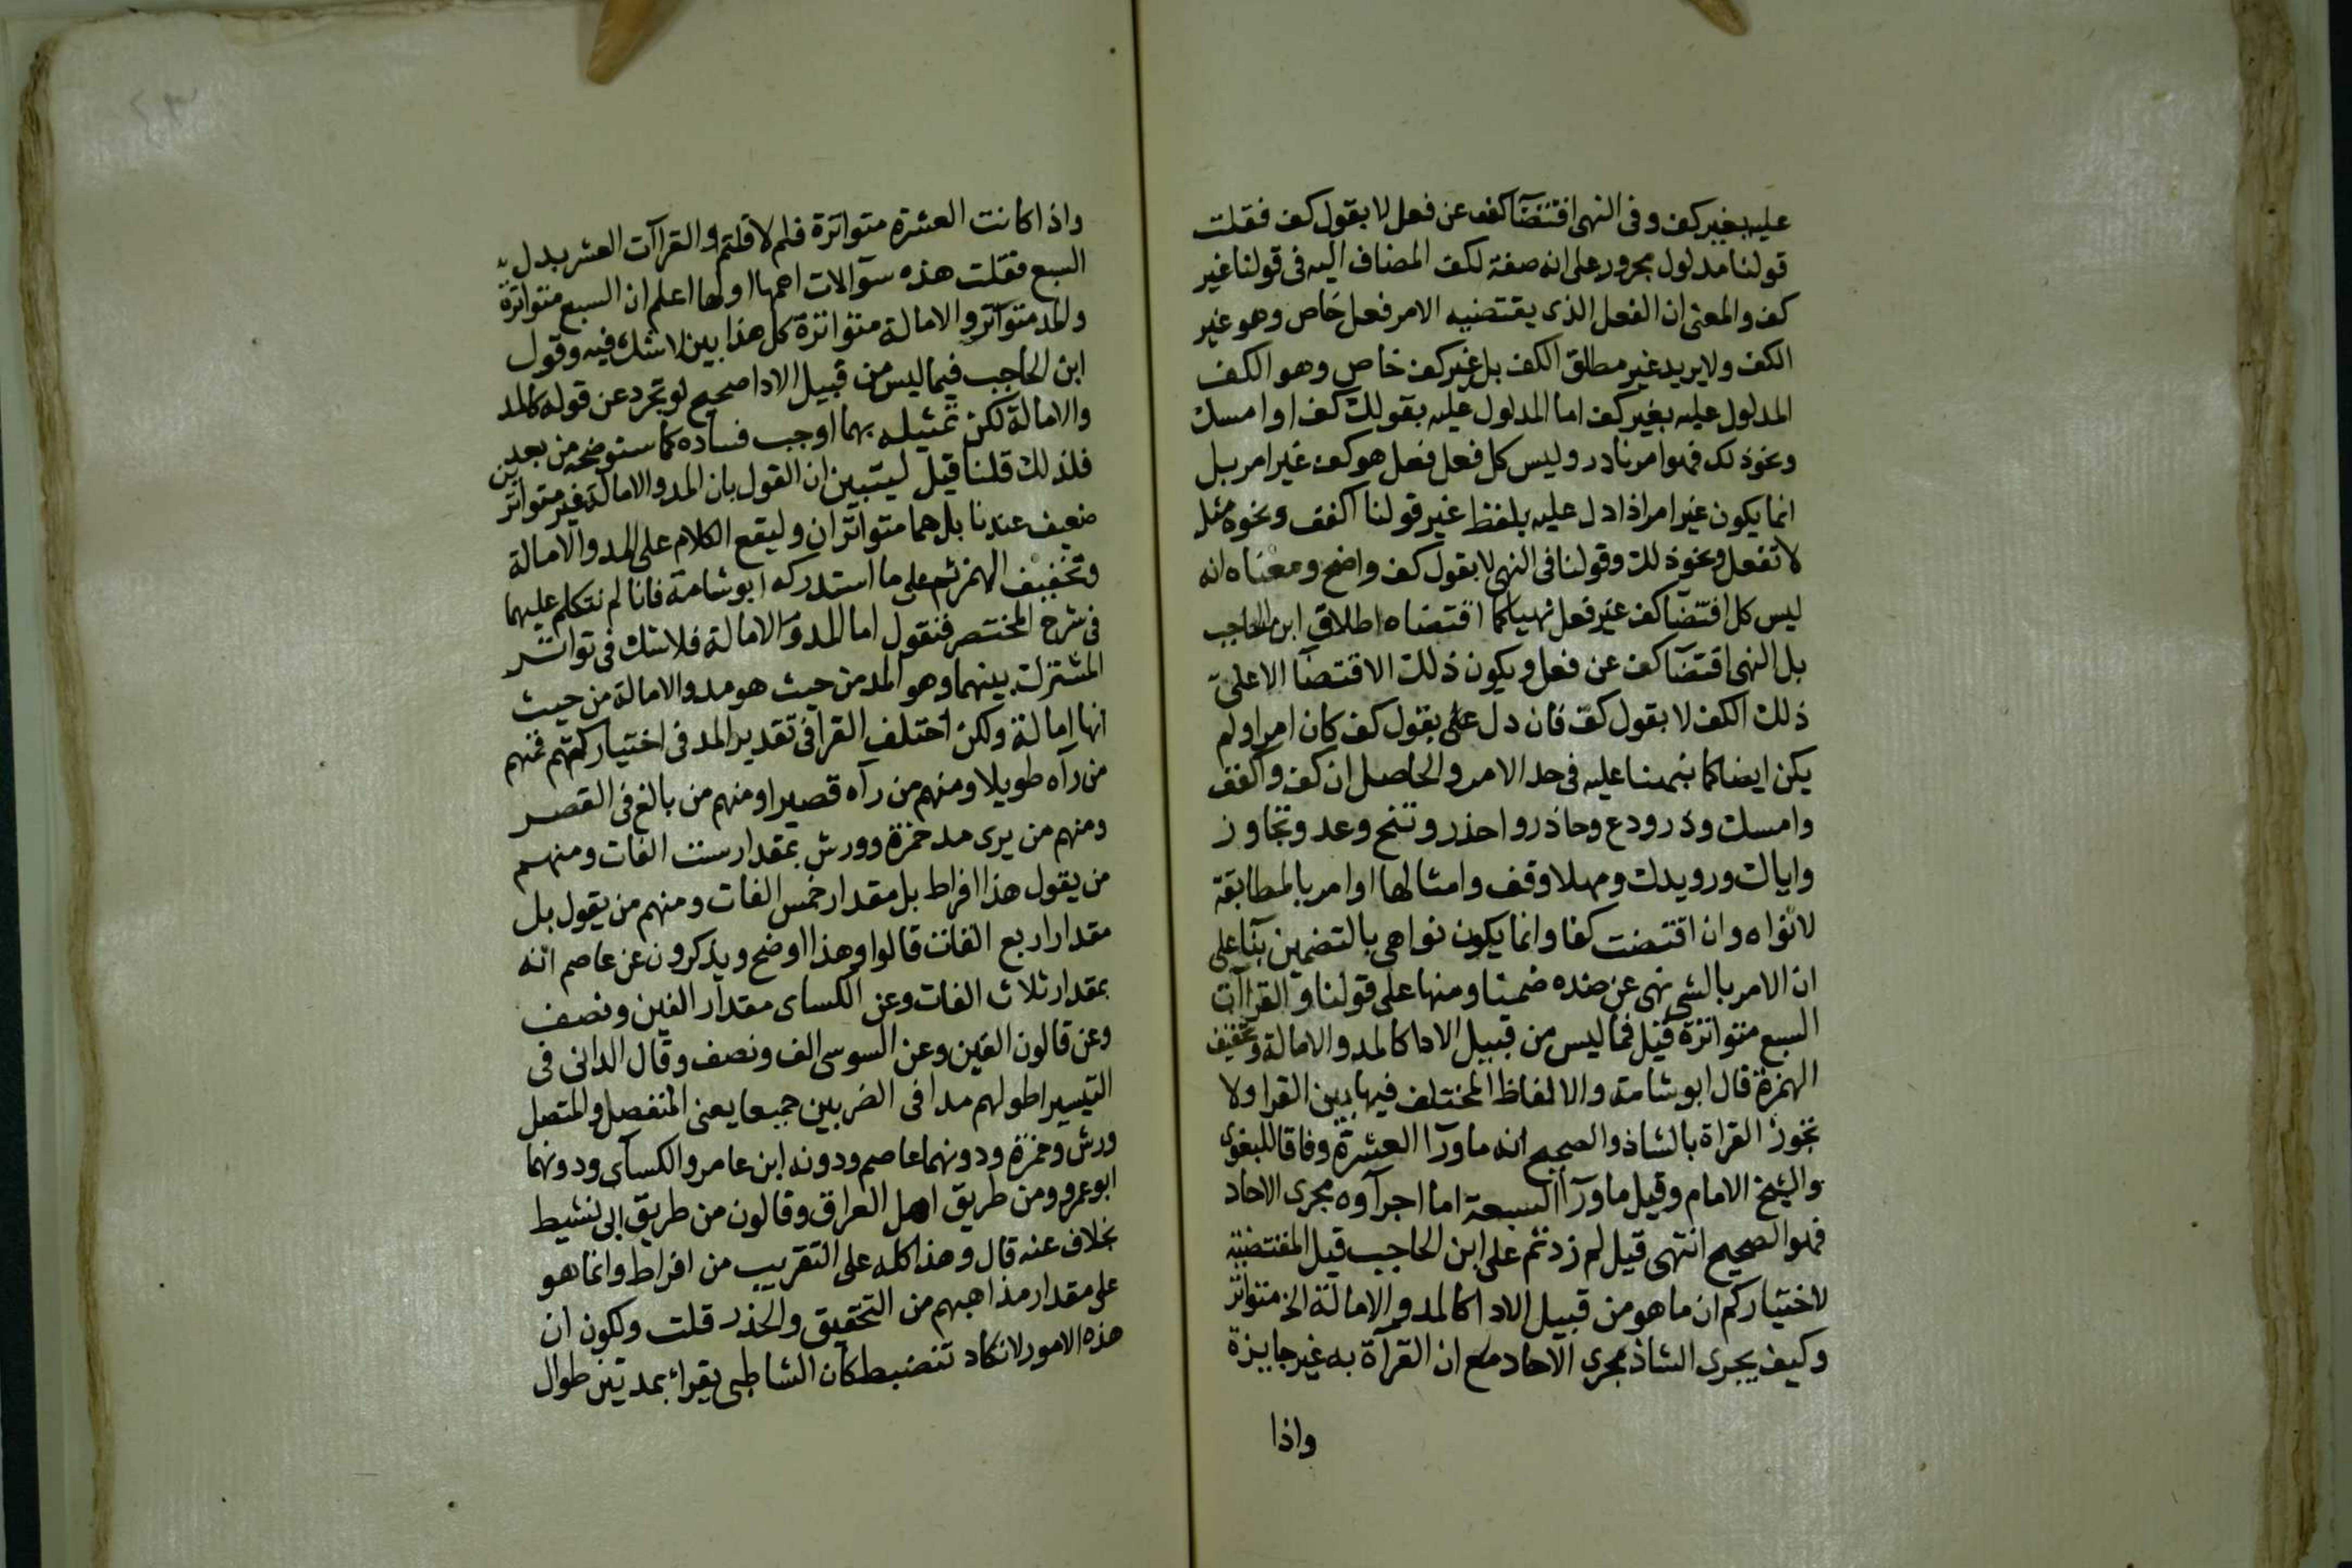 عليه بغير كف وفى النهى اقتضآ كف عن فعل لا بقول كف فقلت
قولنا مدلول مجرور على انه صفة لكف المضاف اليه فى قولنا غير
كف والمعنى ان الفعل الذى يقتضيه الامر فعل خاص وهو غير
الكف ولا يريد غير مطلق الكف بل غير كف خاص وهو الكف
المدلول عليه بغير كف اما المدلول عليه بقولك كف او امسك
ونحو ذلك فهو امر نادر وليس كل فعل فعل هو كف غير امر بل
انما يكون غير امر اذا دل عليه بلفظ غير قولنا اكفف ونحوه مثل
لا تفعل ونحو ذلك وقولنا فى النهى لا بقول كف واضح ومعناه انه
ليس كل اقتضآ كف غير فعل نهيا كما اقتضاه اطلاق ابن الحاجب
بل النهى اقتضآ كف عن فعل ويكون ذلك الاقتضآ الا على
ذلك الكف لا بقول كف فان دل على بقول كف كان امرا ولم
يكن ايضا كما نبهنا عليه فى حد الامر والحاصل ان كف واكفف
وامسك وذر ودع وحاذر واحذر وتنح وعد وتجاوز
واياك ورويدك ومهلا وقف وامثالها اوامر بالمطابقة
لا نواه وان اقتضت كفا وانما يكون نواهى بالتضمين بنآ على
ان الامر بالشى نهى عن ضده ضمنا ومنها على قولنا والقراآت
السبع متواترة قيل فما ليس من قبيل الادا كالمد والامالة وتخفيف
الهمزة قال ابو شامة والالفاظ المختلف فيها بين القرا ولا
تجوز القراة بالشاذ والصحيح انه ما ورآ العشرة وفاقا للبغوى
والشيخ الامام وقيل ما ورآ السبعة اما اجرآوه مجرى الاحاد
فهو الصحيح انتهى قيل لم زدتم على ابن الحاجب قيل المقتضية
لاختياركم ان ما هو من قبيل الادا كالمد والامالة الخ متواتر
وكيف يجرى الشاذ مجرى الاحاد مع ان القرآة به غير جايزة
واذا
واذا كانت العشرة متواترة فلم لا قلتم والقراآت العشر بدل
السبع فقلت هذه سوآلات اهمها اولها اعلم ان السبع متواترة
والمد متواتر والامالة متواترة كل هذا بين لا شك فيه وقول
ابن الحاجب فيما ليس من قبيل الادا صحيح لو تجرد عن قوله كالمد
والامالة لكن تمثيله بهما اوجب فساده كما سنوضحه من بعد
فلذلك قلنا قيل ليتبين ان القول بان المد والامالة غير متواترين
ضعيف عندنا بل هما متواتران وليقع الكلام على المد والامالة
وتخفيف الهمز ثم على ما استدركه ابو شامة فانا لم نتكلم عليهما
فى شرح المختصر فنقول اما المد والامالة فلا شك فى تواتر
المشترك بينهما وهو المد من حيث هو مد والامالة من حيث
انها امالة ولكن اختلف القرا فى تقدير المد فى اختياركهم فمنهم
من رآه طويلا ومنهم من رآه قصيرا ومنهم من بالغ فى القصر
ومنهم من يرى مد حمزة وورش بمقدار ست الفات ومنهم
من يقول هذا افراط بل مقدار خمس الفات ومنهم من يقول بل
مقدار اربع الفات قالوا وهذا اوضح ويذكرون عن عاصم انه
بمقدار ثلاث الفات وعن الكساى مقدار الفين ونصف
وعن قالون الفين وعن السوسى الف ونصف وقال الدانى فى
التيسير اطولهم مدا فى الضربين جميعا يعنى المنفصل والمتصل
ورش وحمزة ودونهما عاصم ودونه ابن عامر والكسآى ودونهما
ابو عمرو ومن طريق اهل العراق وقالون من طريق ابى نشيط
بخلاف عنه قال وهذا كله على التقريب من افراط وانما هو
على مقدار مذاهبهم من التحقيق والحذر قلت ولكون ان
هذه الامور لا تكاد تنضبط كان الشاطبى يقرا بمدتين طوال